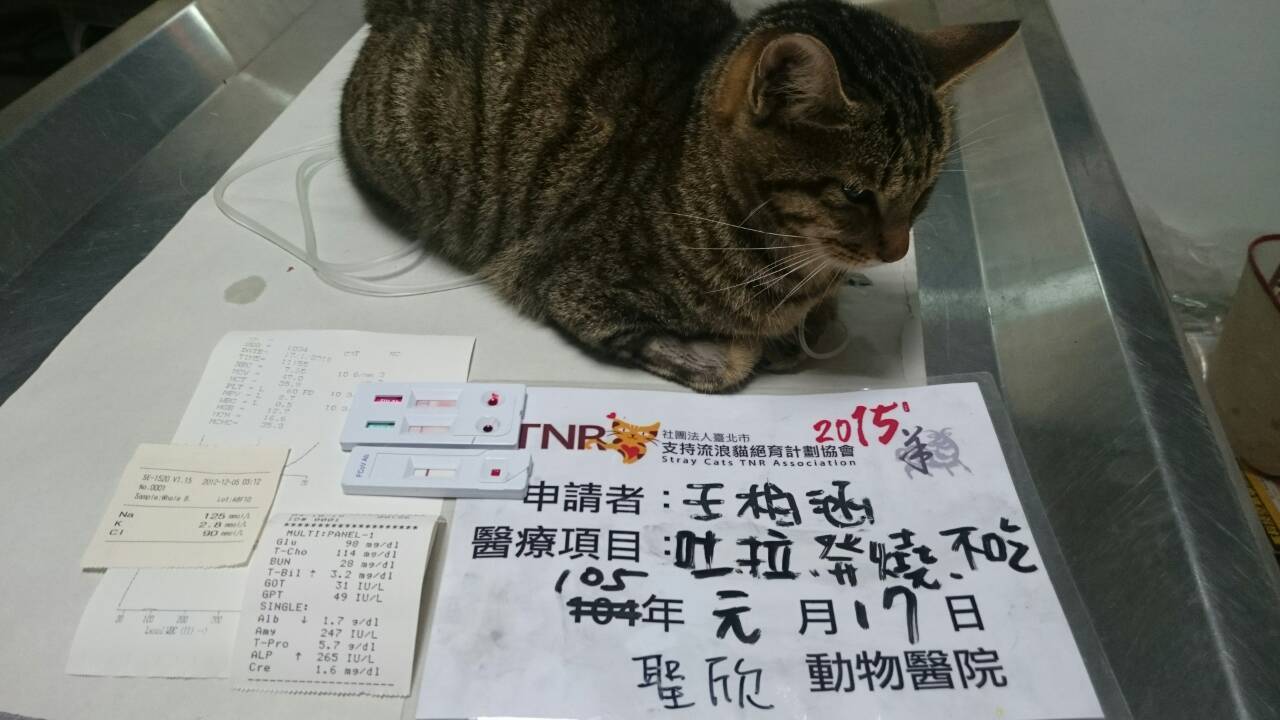 SE-1520 V1.15 2012-12-05 03:12
No.0001
Sample:Whole B. Lot:ABF10
Na 125 mmol/L
K 2.8 mmol/L
Cl 90 mmol/L
ID# 0001
MULTI:PANEL-1
Glu 98 mg/dl
T-Cho 114 mg/dl
BUN 28 mg/dl
T-Bil ↑ 3.2 mg/dl
GOT 31 IU/L
GPT 49 IU/L
SINGLE:
Alb ↓ 1.7 g/dl
Amy 247 IU/L
T-Pro 5.7 g/dl
ALP ↑ 265 IU/L
Cre 1.6 mg/dl
FCoV Ab
TNR 社團法人臺北市
支持流浪貓絕育計劃協會
Stray Cats TNR Association
2015
第
申請者:王柏涵
醫療項目:吐拉.發燒.不吃
105
104年元月17日
聖欣動物醫院